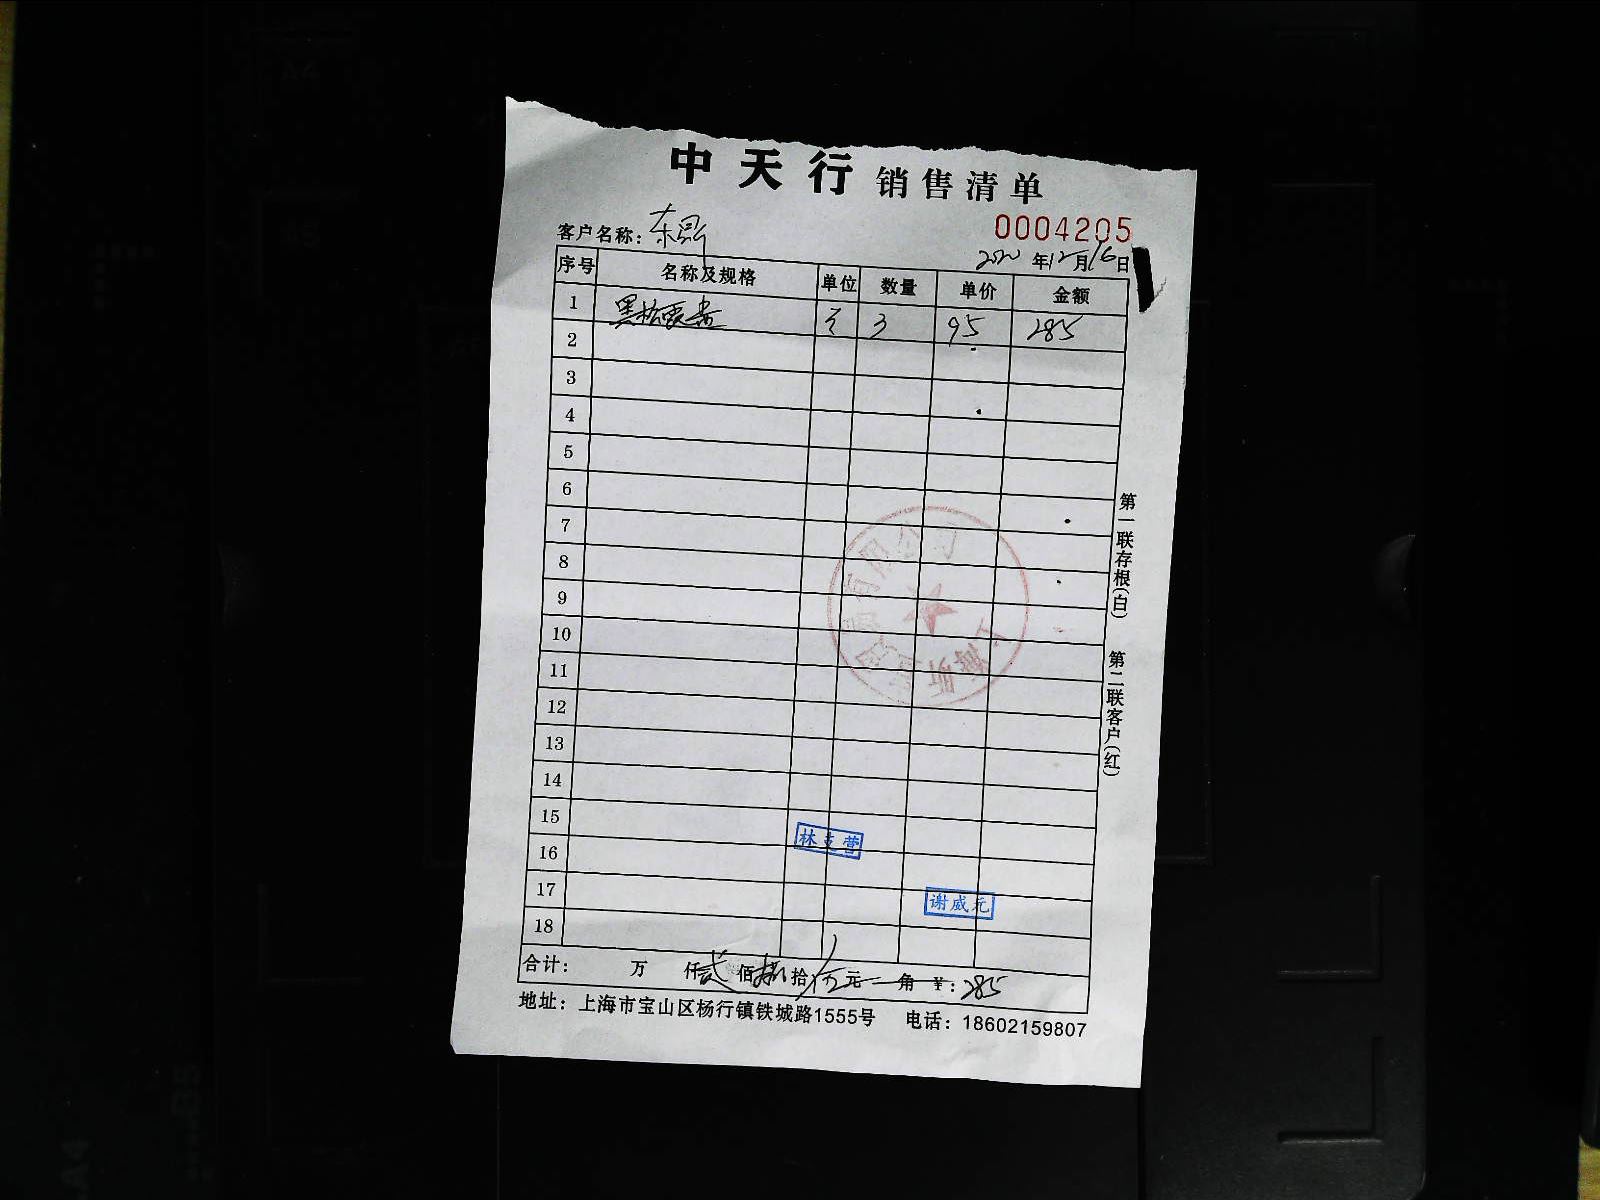 中天行 销售清单
0004205
客户名称：东
2020年12月16日
序号 名称及规格 单位 数量 单价 金额
1 黑 3 95 285
2
3
4
5
6
7
8
9
10
11
12
13
14
15
16
17
18
有限公司
林支营
谢威元
合计： 万 仟贰佰捌拾伍元 角 ￥：285
地址：上海市宝山区杨行镇铁城路1555号 电话：18602159807
第一联存根(白) 第二联客户(红)